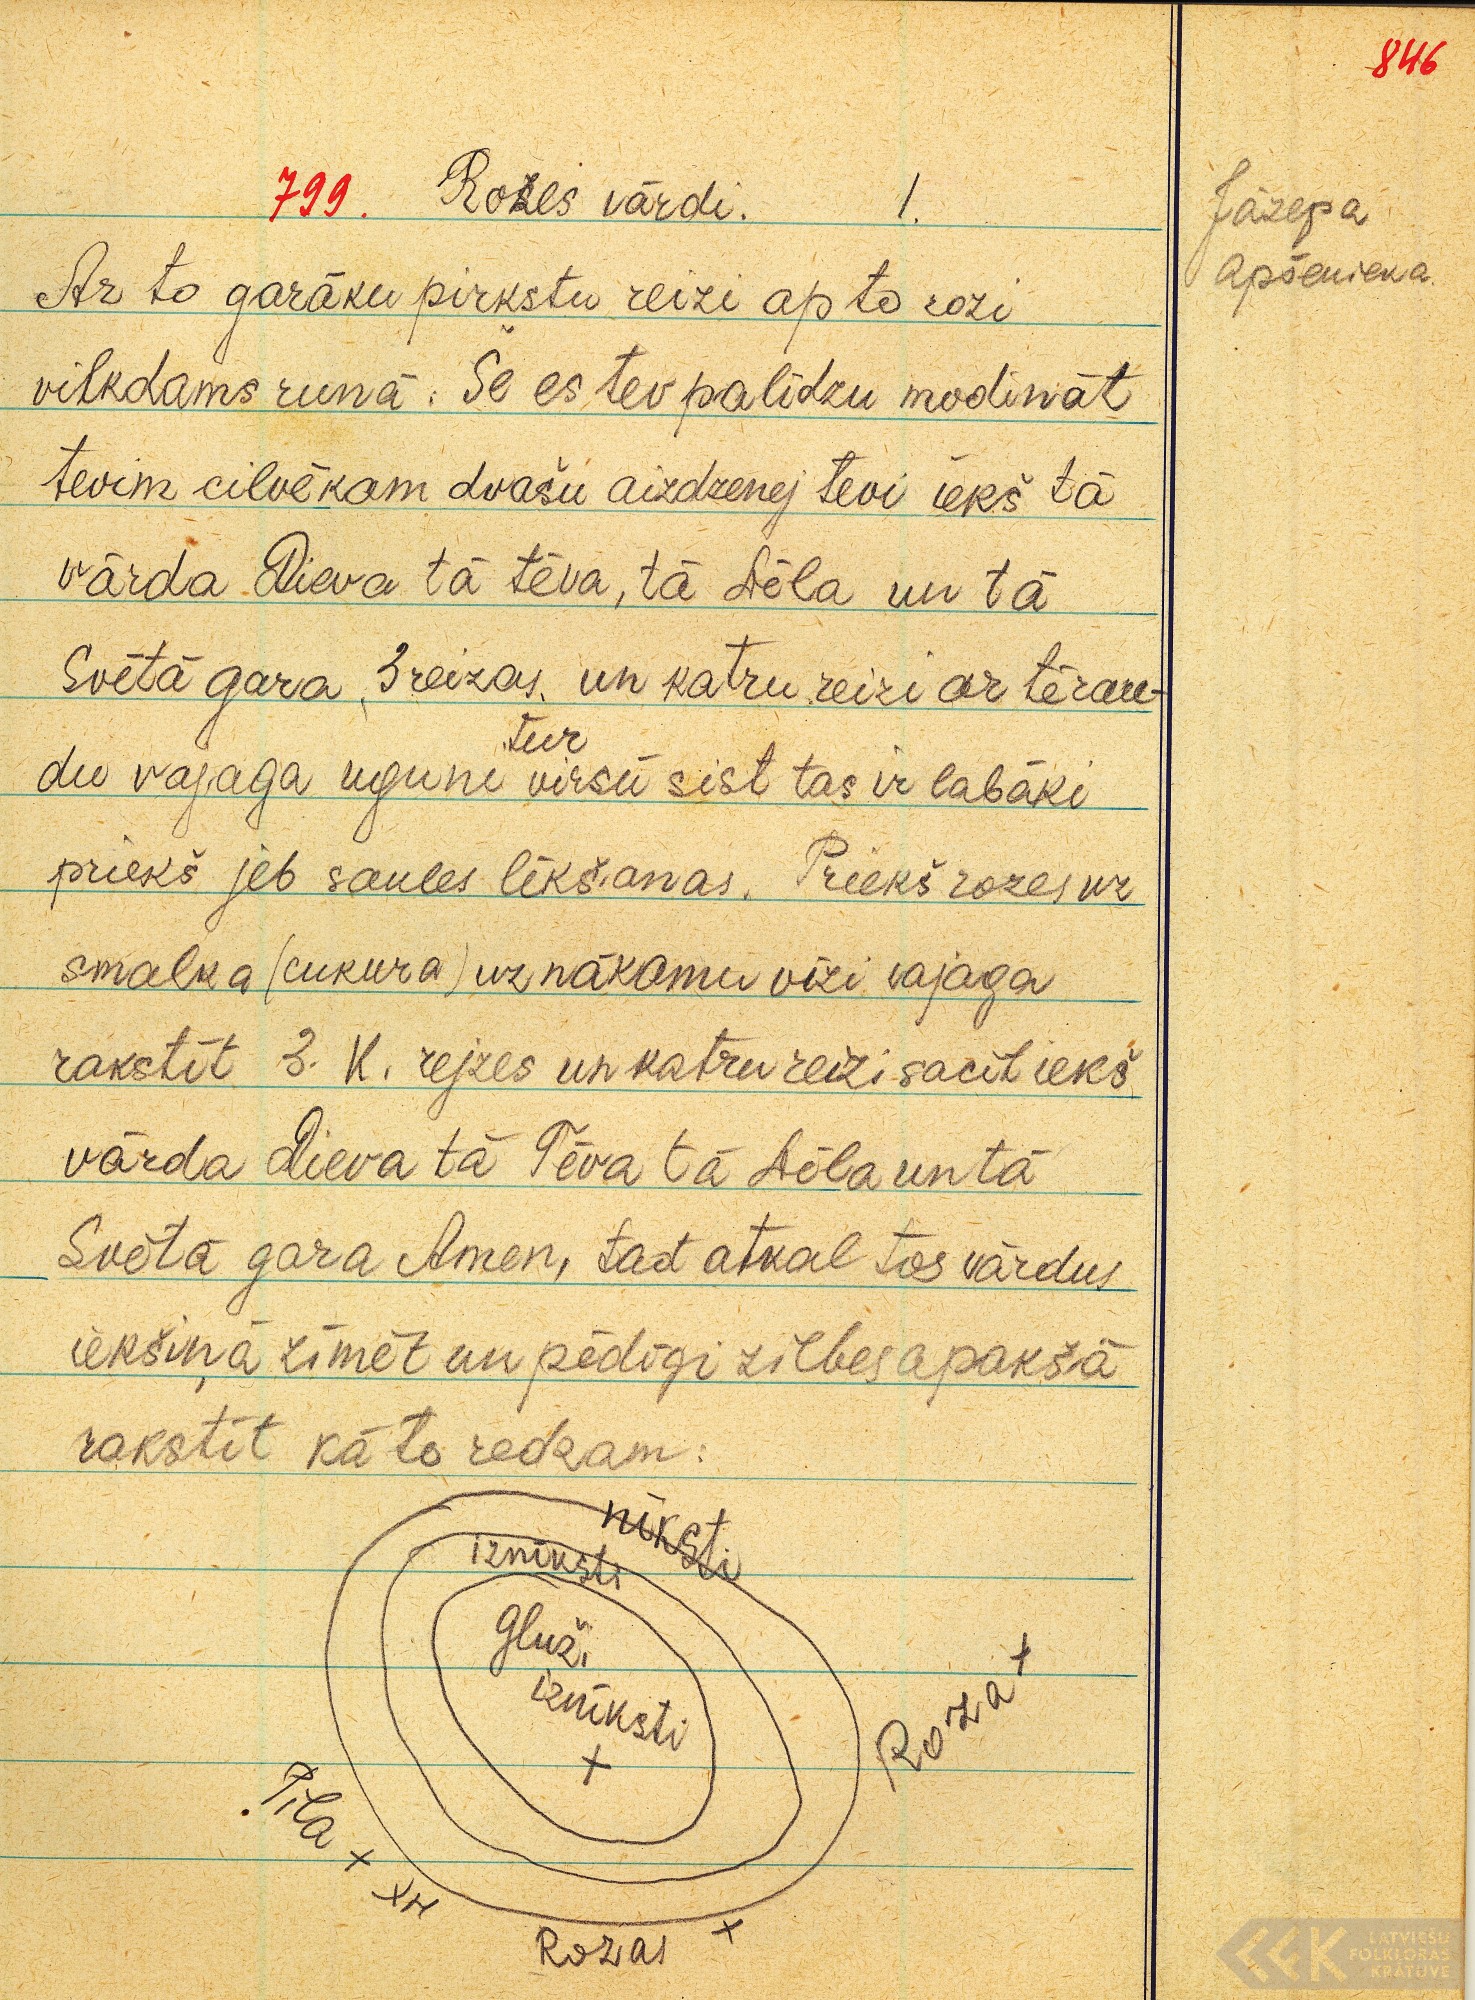 846
799. Rozes vārdi. 1.
Jāzepa
Apšenieka.
Ar to garāku pirkstu reizi ap to rozi
vilkdams runā: Še es tev palīdzu modināt
tevim cilvēkam dvašu aizdzenej tevi iekš tā
vārda Dieva tā tēva, tā Dēla un tā
Svētā gara, 3 reizas. un katru reizi ar tērau-
tur
du vajaga uguni virsū sist tas ir labāki
priekš jeb saules lēkšanas. Priekš rozes uz
smalka (cukura) uz nākamu vīzi vajaga
rakstīt 3. K. rejzes un katru reizi sacīt iekš
vārda Dieva tā Tēva tā Dēla un tā
Svētā gara Amen, tad atkal tos vārdus
iekšiņā zīmēt un pēdīgi zilbes apakšā
rakstīt kā to redzam:
nīksti
iznīksti
Gluži
iznīksti
+
Roza +
Pila +
Rozas +
LATVIEŠU
FOLKLORAS
KRĀTUVE